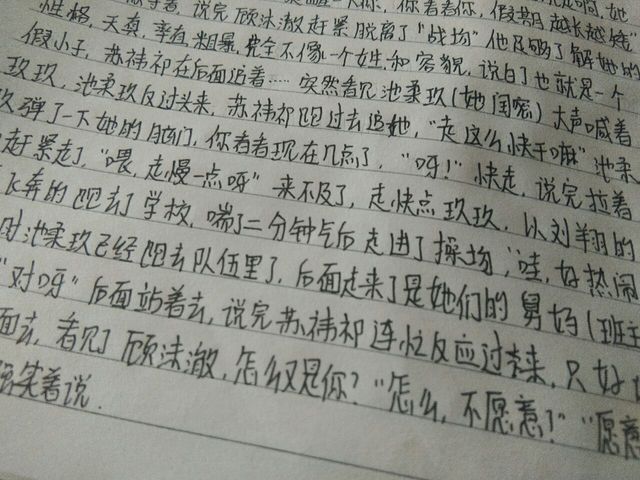 说完顾沫澈赶紧脱离了"战场"他足够了解她的
性格,天真,率直,粗暴,完全不像一个女生,和容貌,说白了也就是一个
假小子,苏祎祁在后面追着……突然看见池柔玖(她闺密)大声喊着
玖玖,池柔玖反过头来,苏祎祁跑过去追她,"走这么快干嘛"池柔
玖弹了一下她的脑门,你看看现在几点了,"呀!"快走,说完拉着
赶紧走了,"喂,走慢一点呀"来不及了,走快点玖玖,以刘翔的
飞奔的跑去了学校,喘了二分钟气后走进了操场,"哇,好热闹
时池柔玖已经跑去队伍里了,后面走来了是她们的舅妈(班主
"对呀"后面站着去,说完苏祎祁连忙反应过来,只好
面去,看见了顾沫澈,怎么又是你?"怎么,不愿意?""愿意
笑着说.